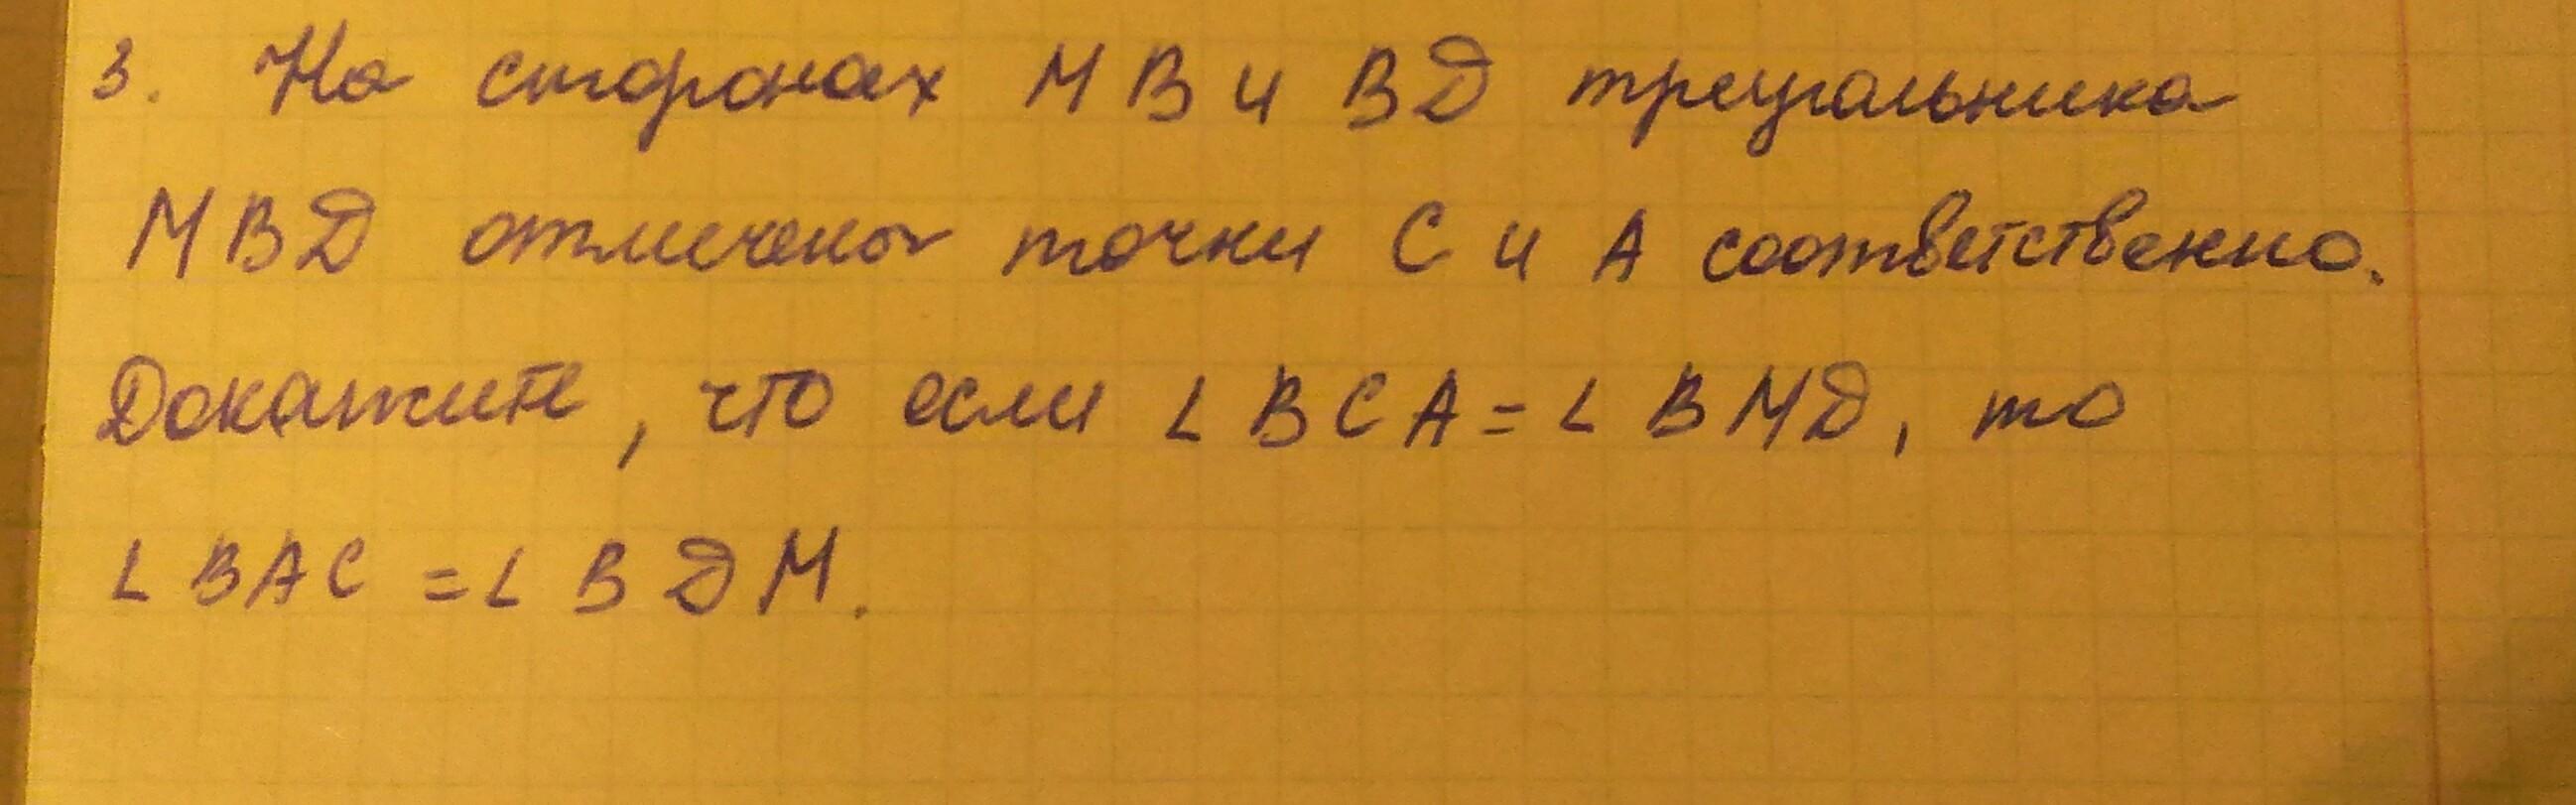 3. На сторонах МВ и ВД треугольника
МВД отмечены точки С и А соответственно.
Докажите, что если ∠ ВСА = ∠ ВМД, то
∠ ВАС = ∠ ВДМ.